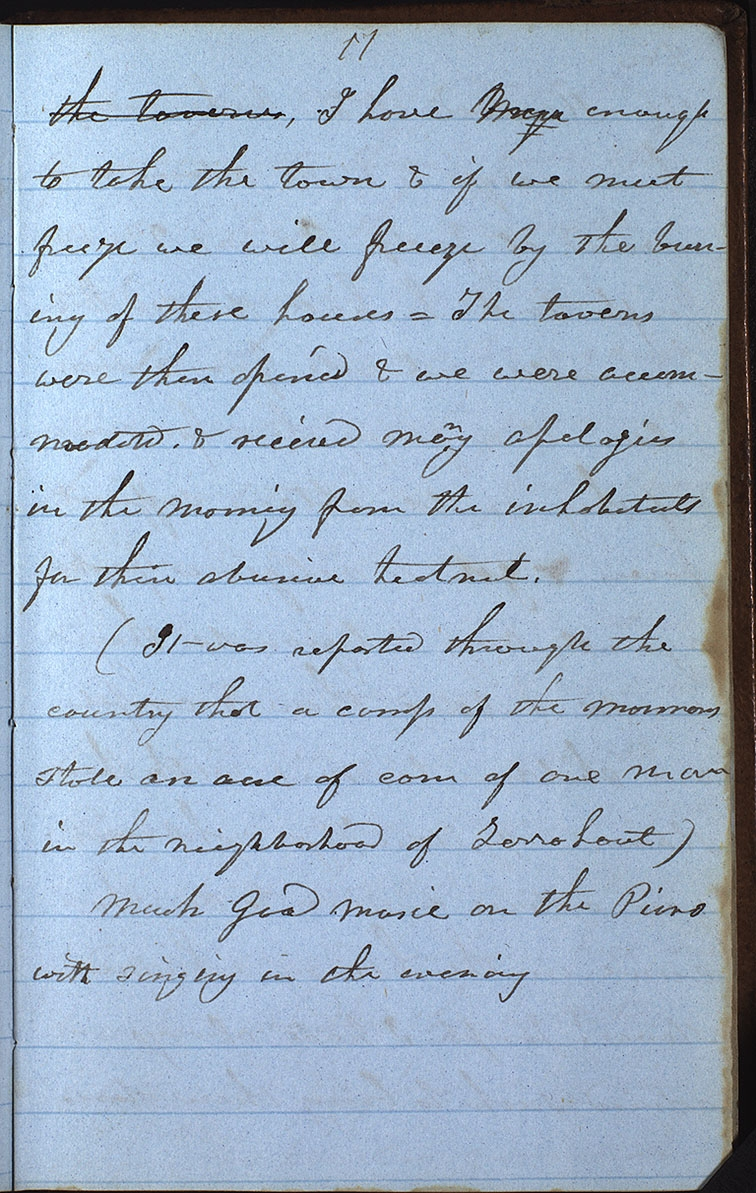 11
the taverns, I have enough
to take the town & if we must
freeze we will freeze by the burn-
ing of these houses = The taverns
were then opened & we were accom-
modated. & recieved many apologies
in the morning from the inhabitants
for their abusive treatment.
( It was reported through the
country that a camp of the mormons
stole an acre of corn of one man
in the neighborhood of Terrahout )
Much Good music on the Piano
with singing in the evening